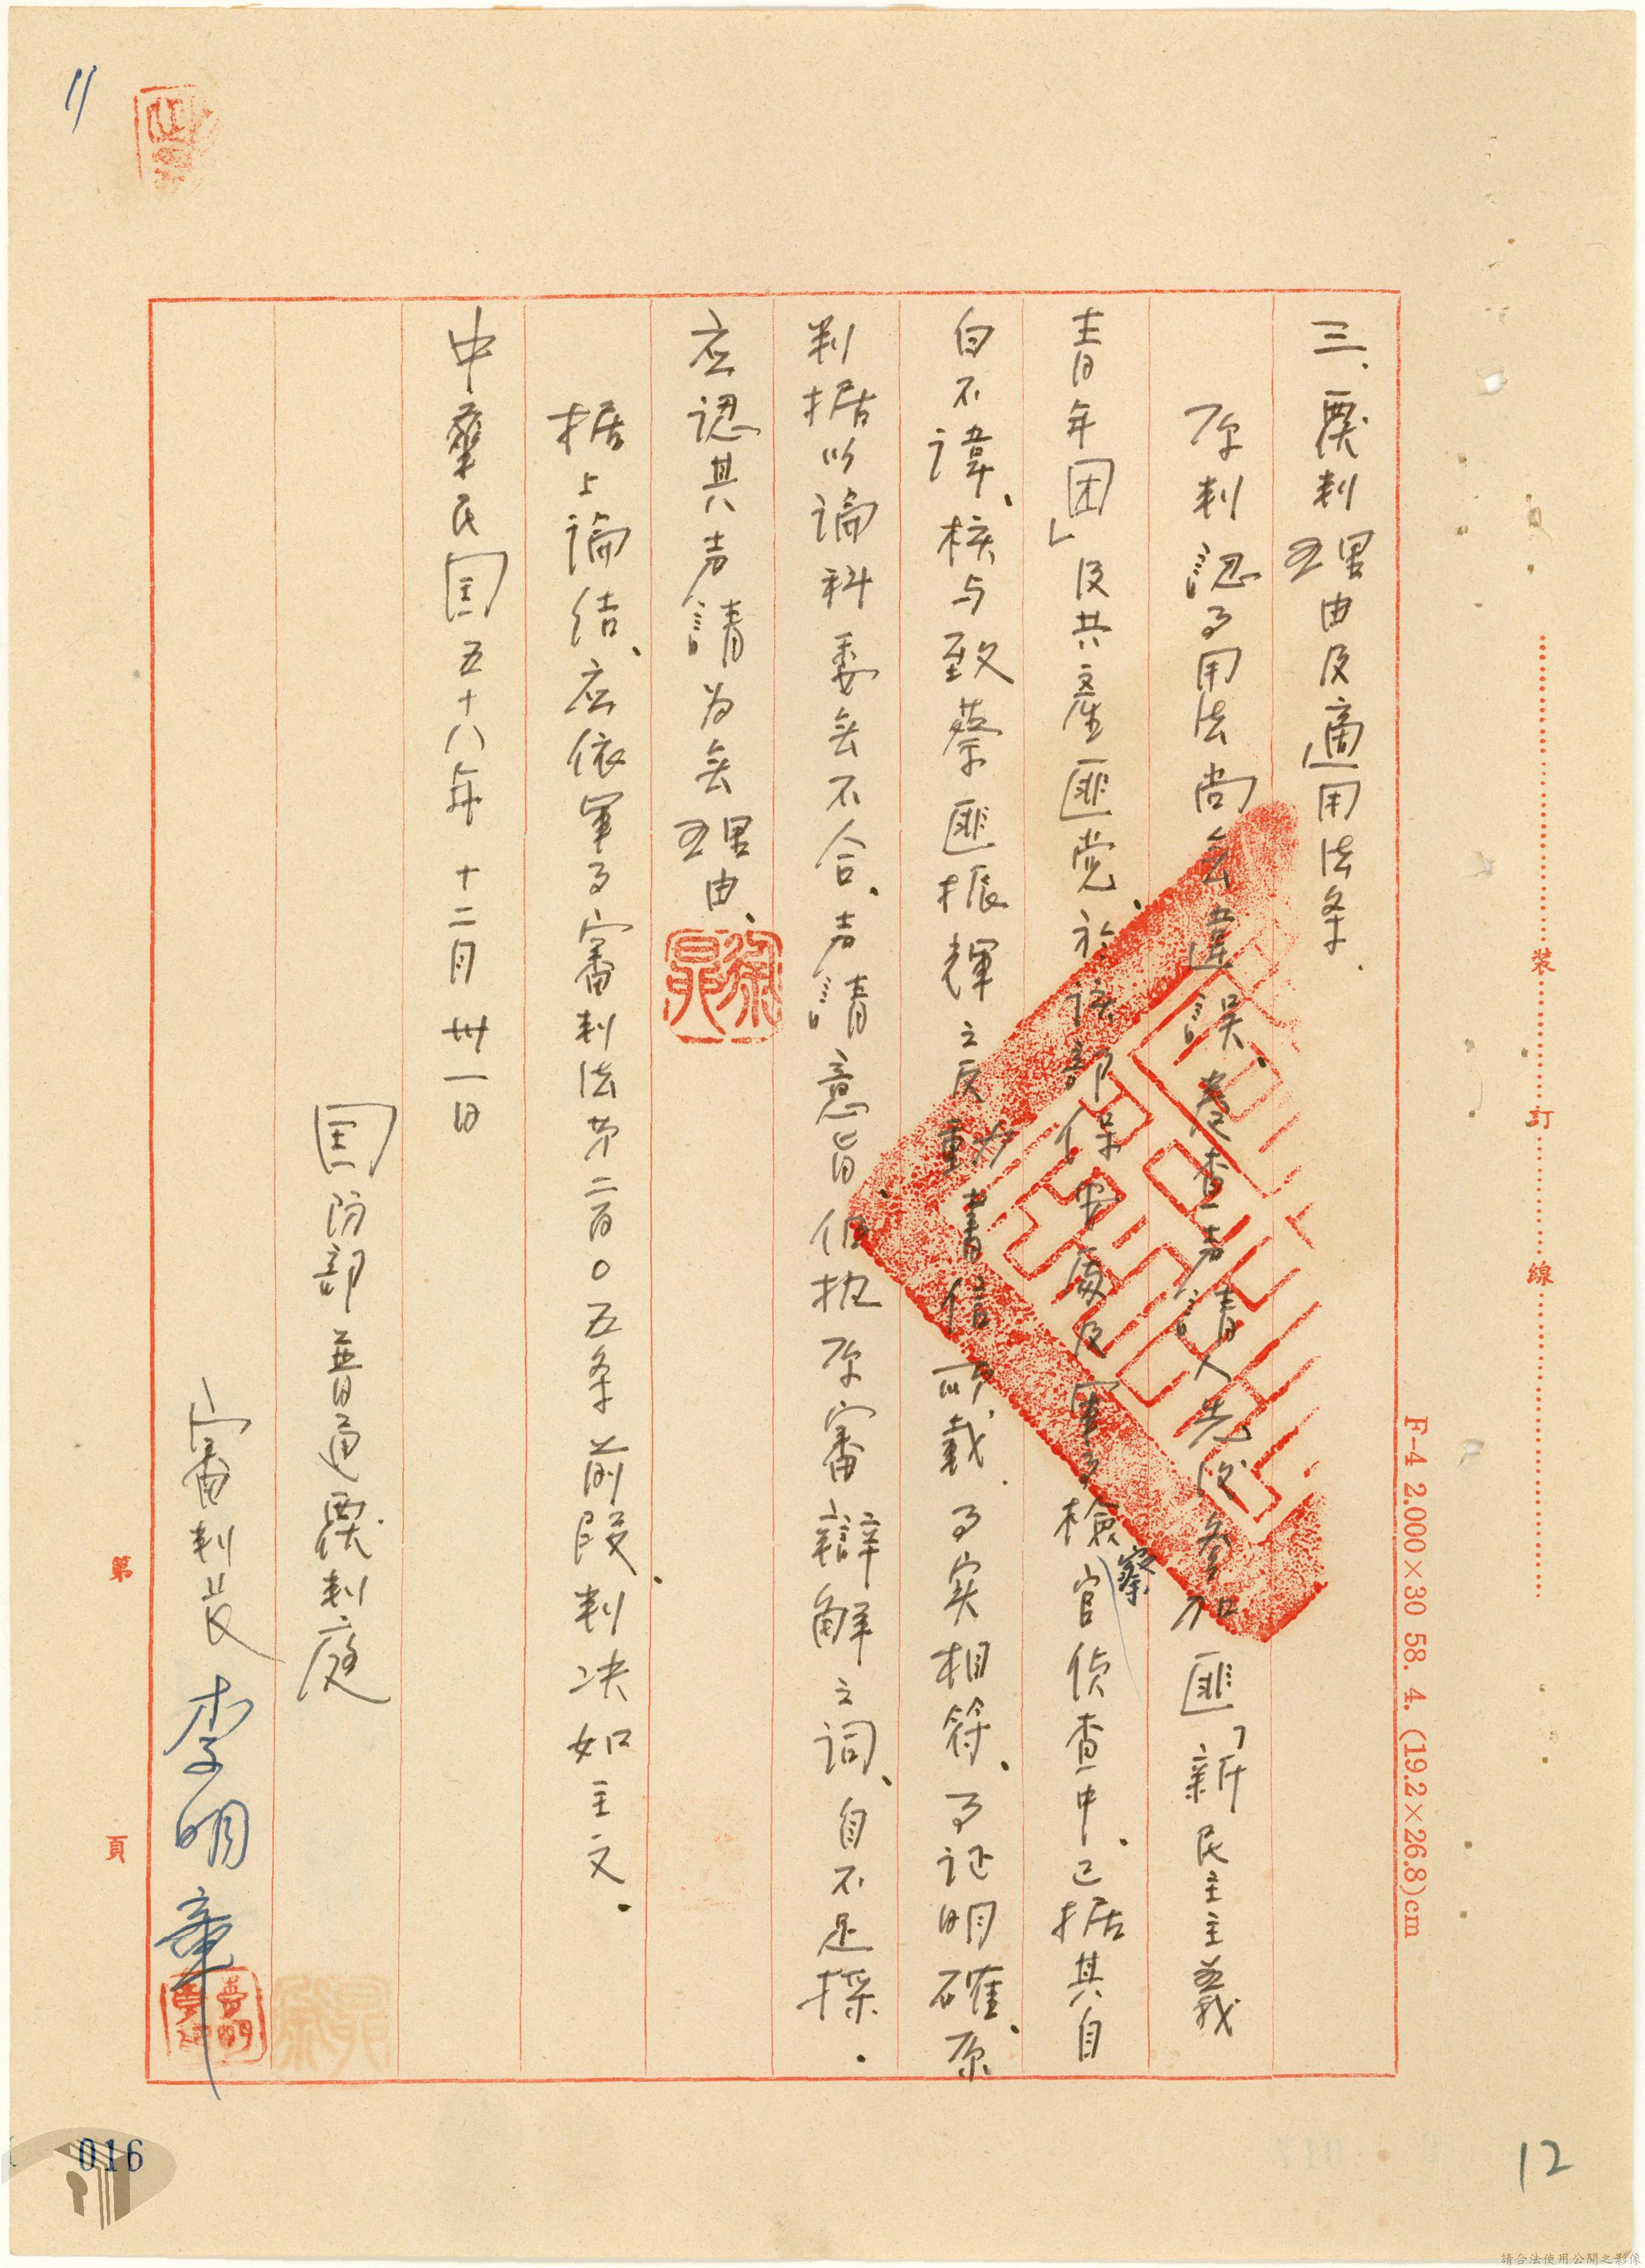 三、覆判理由及適用法条.
原判認事用法尚無違誤、卷查声請人先後參加匪「新民主主義
青年团」及共產匪党、於該部保安處及軍事檢察官偵查中、已据其自
白不諱、核与致蔡匪振輝之反動書信所載事实相符、事证明確、原
判据以論科委無不合、声請意旨、仍执原審辯解之词、自不足採.
应認其声請为無理由、
据上論结、应依軍事審判法第二百0五条前段、判决如主文.
中華民国五十八年十二月卅一日
国防部普通覆判庭
審判長 李明章
裝 訂 線
F-4 2.000×30 58. 4. (19.2×26.8)cm
第 頁
11
016
12
請合法使用公開之影像